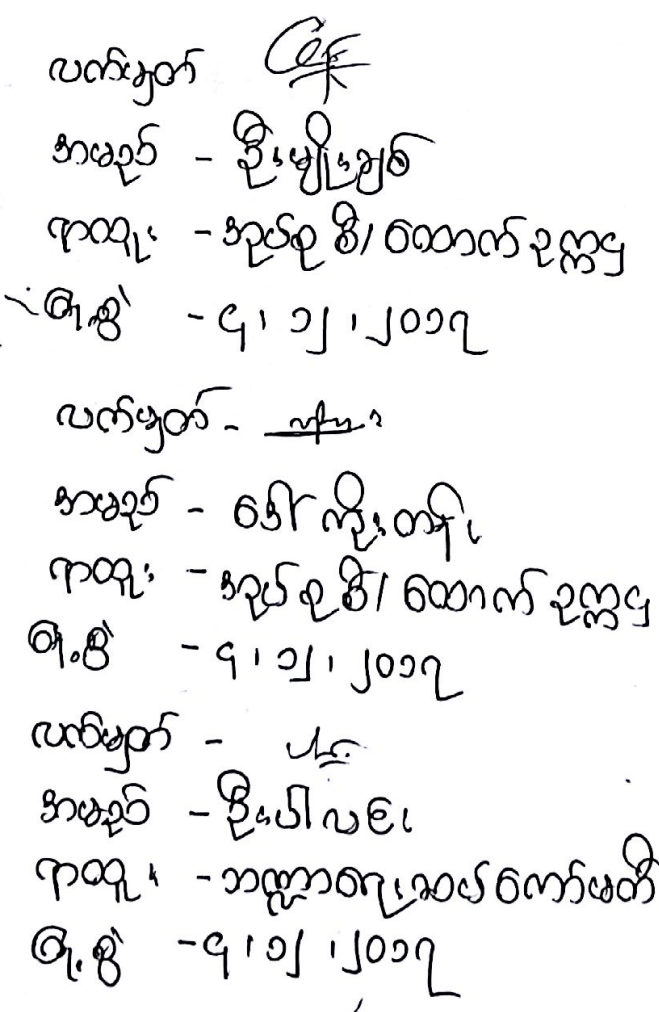 လက်မှတ်
အမည် - ဦးမျိုးချစ်
ရာထူး - အုပ်စု စီ/ ထောက် ဥက္ကဌ
ရ.စွဲ - ၄၊ ၁၂ ၊ ၂၀၁၇
လက်မှတ် -
အမည် - ဒေါ်ကိုးတန်း
ရာထူး - အုပ်စု စီ/ ထောက် ဥက္ကဌ
ရ.စွဲ - ၄ ၊ ၁၂ ၊ ၂၀၁၇
လက်မှတ် -
အမည် - ဦးပါလင်း
ရာထူး - ဘဏ္ဍာရေးဆပ်ကော်မတီ
ရ.စွဲ - ၄ ၊ ၁၂ ၊ ၂၀၁၇